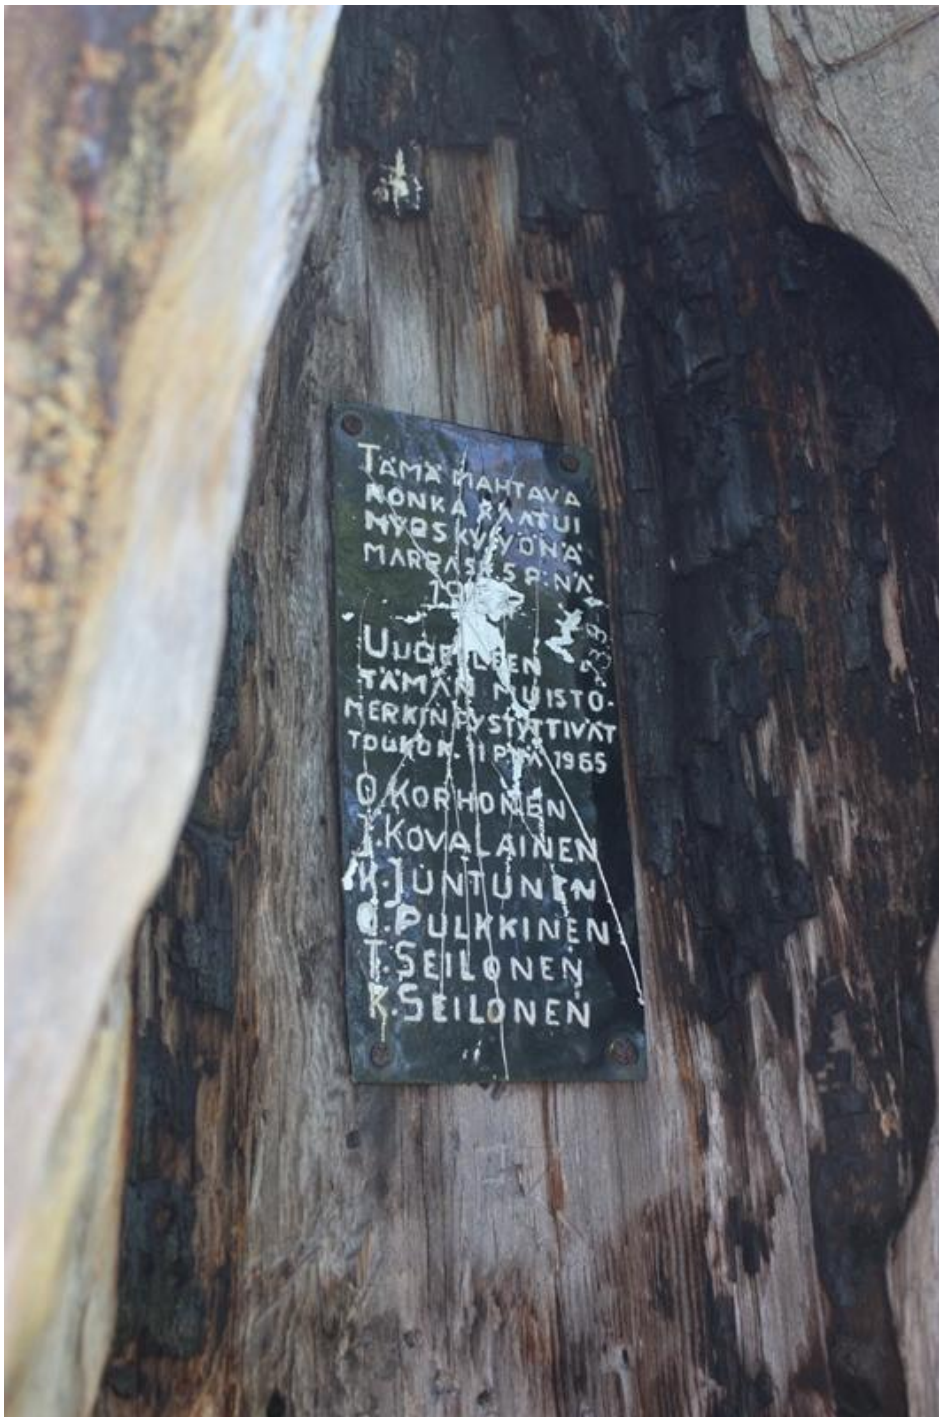 TÄMÄ MAHTAVA
HONKA KAATUI
MYRSKYYÖNÄ
MARRASK. 5 P:NÄ
UUDELLEEN
TÄMÄN MUISTO-
MERKIN PYSTYTTIVÄT
TOUKOK. 11 P:NÄ 1965
O. KORHONEN
KOVALAINEN
K. JUNTUNEN
PULKKINEN
T. SEILONEN
K. SEILONEN